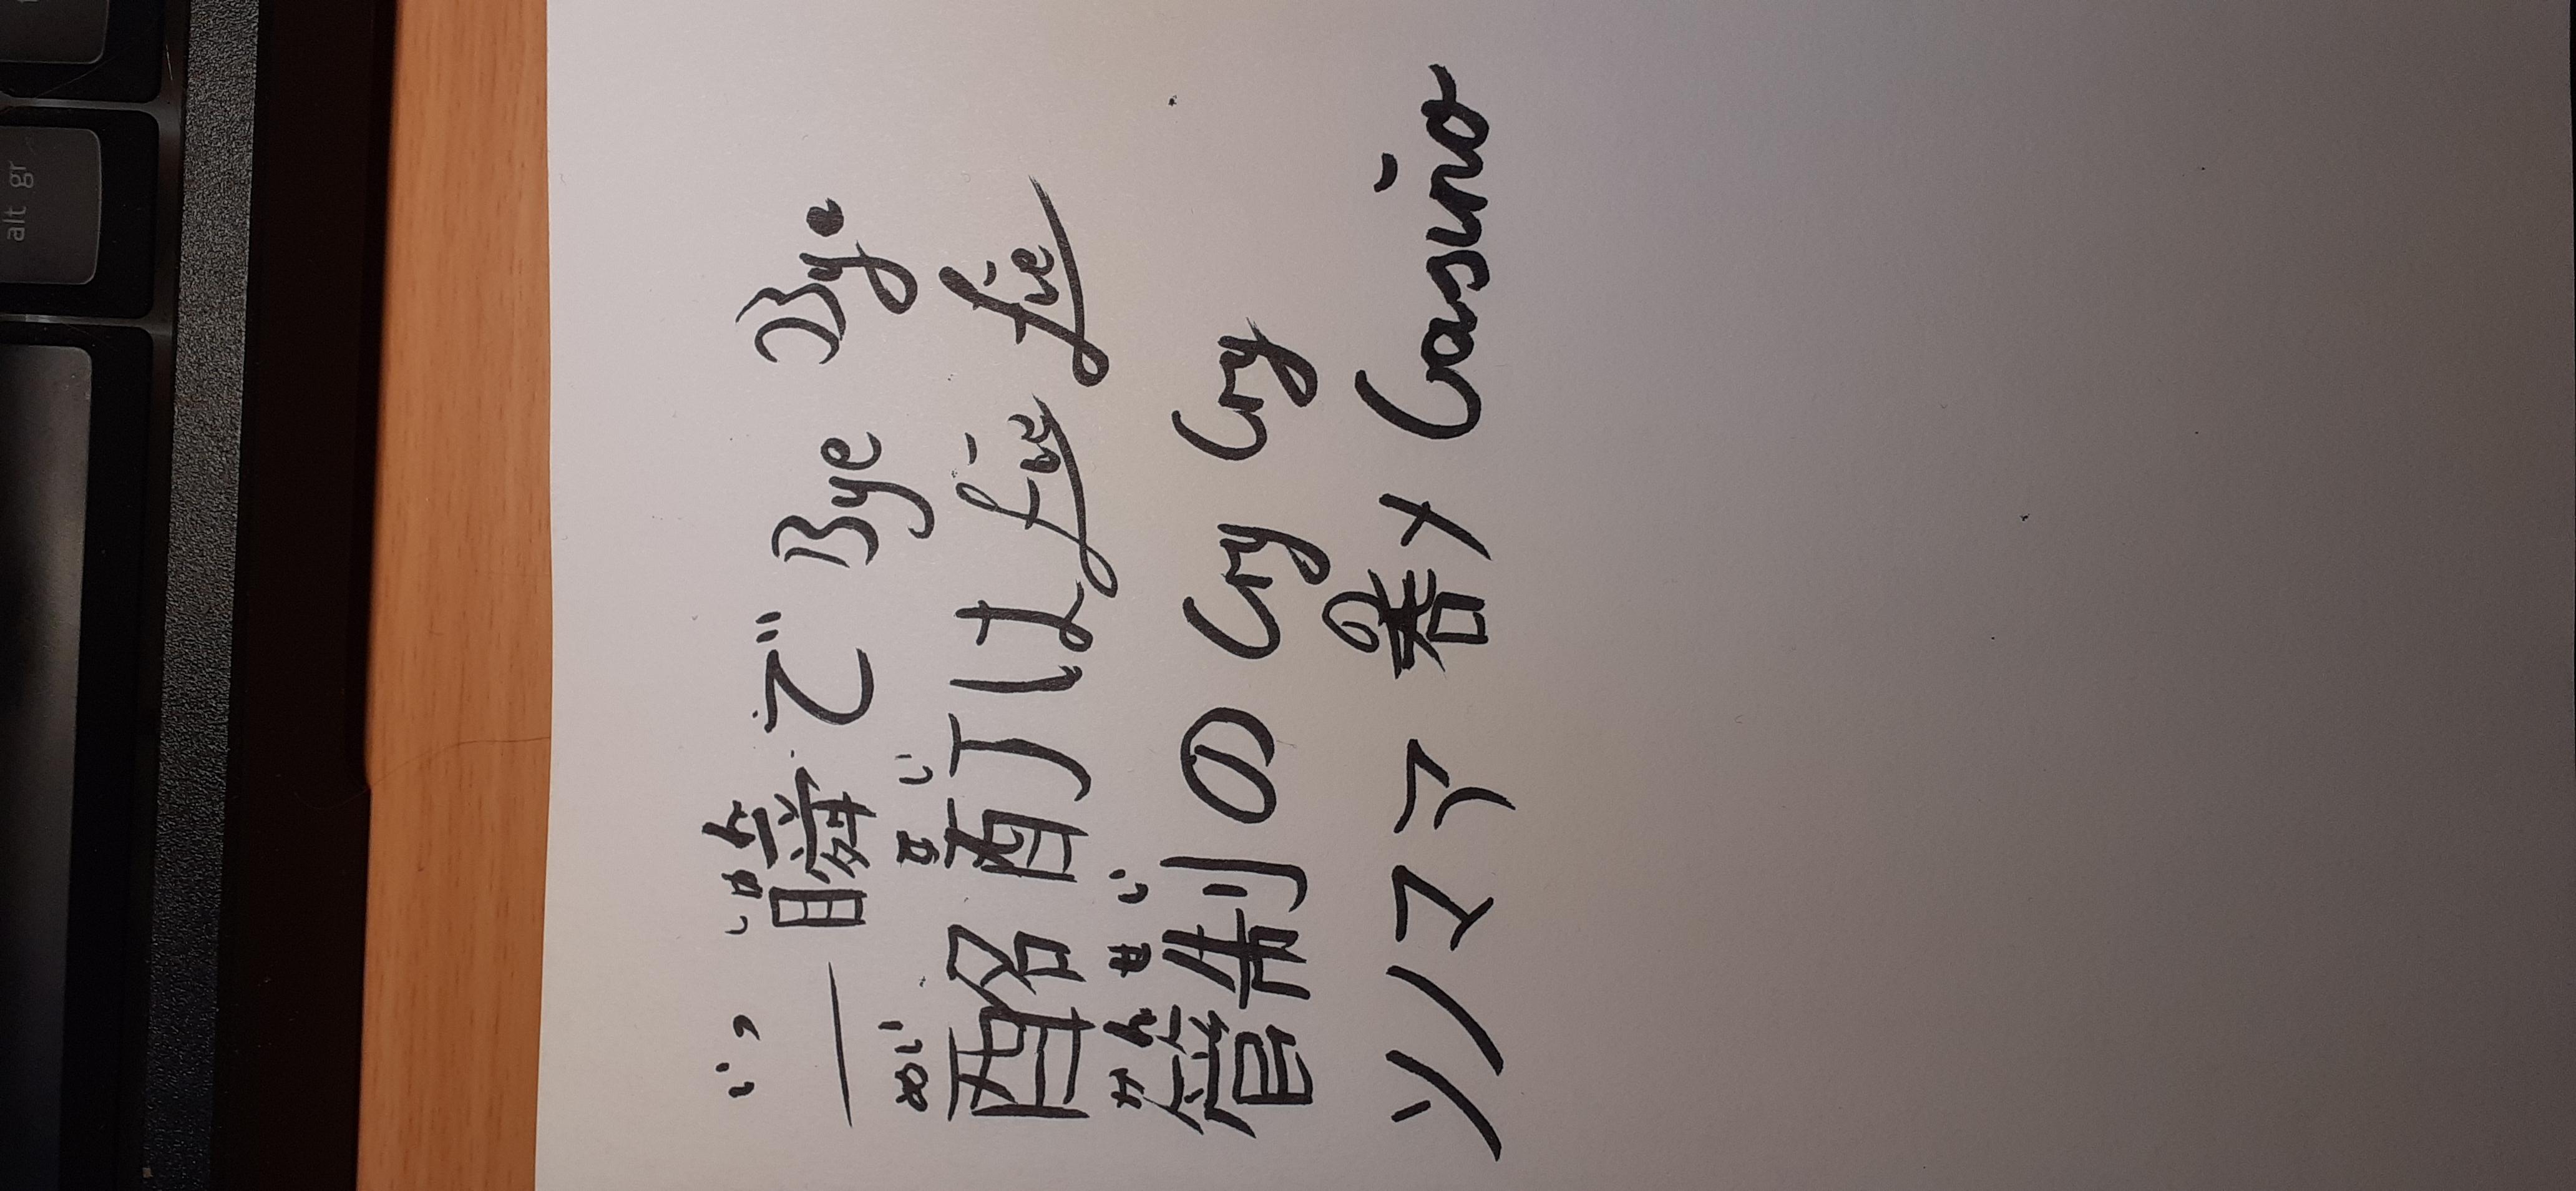 alt gr
いっ しゅん
一瞬で Bye Bye
めい てい
酩酊は fie fie
かん せい
管制の Cry Cry
の
ソノママ 呑メ Casino